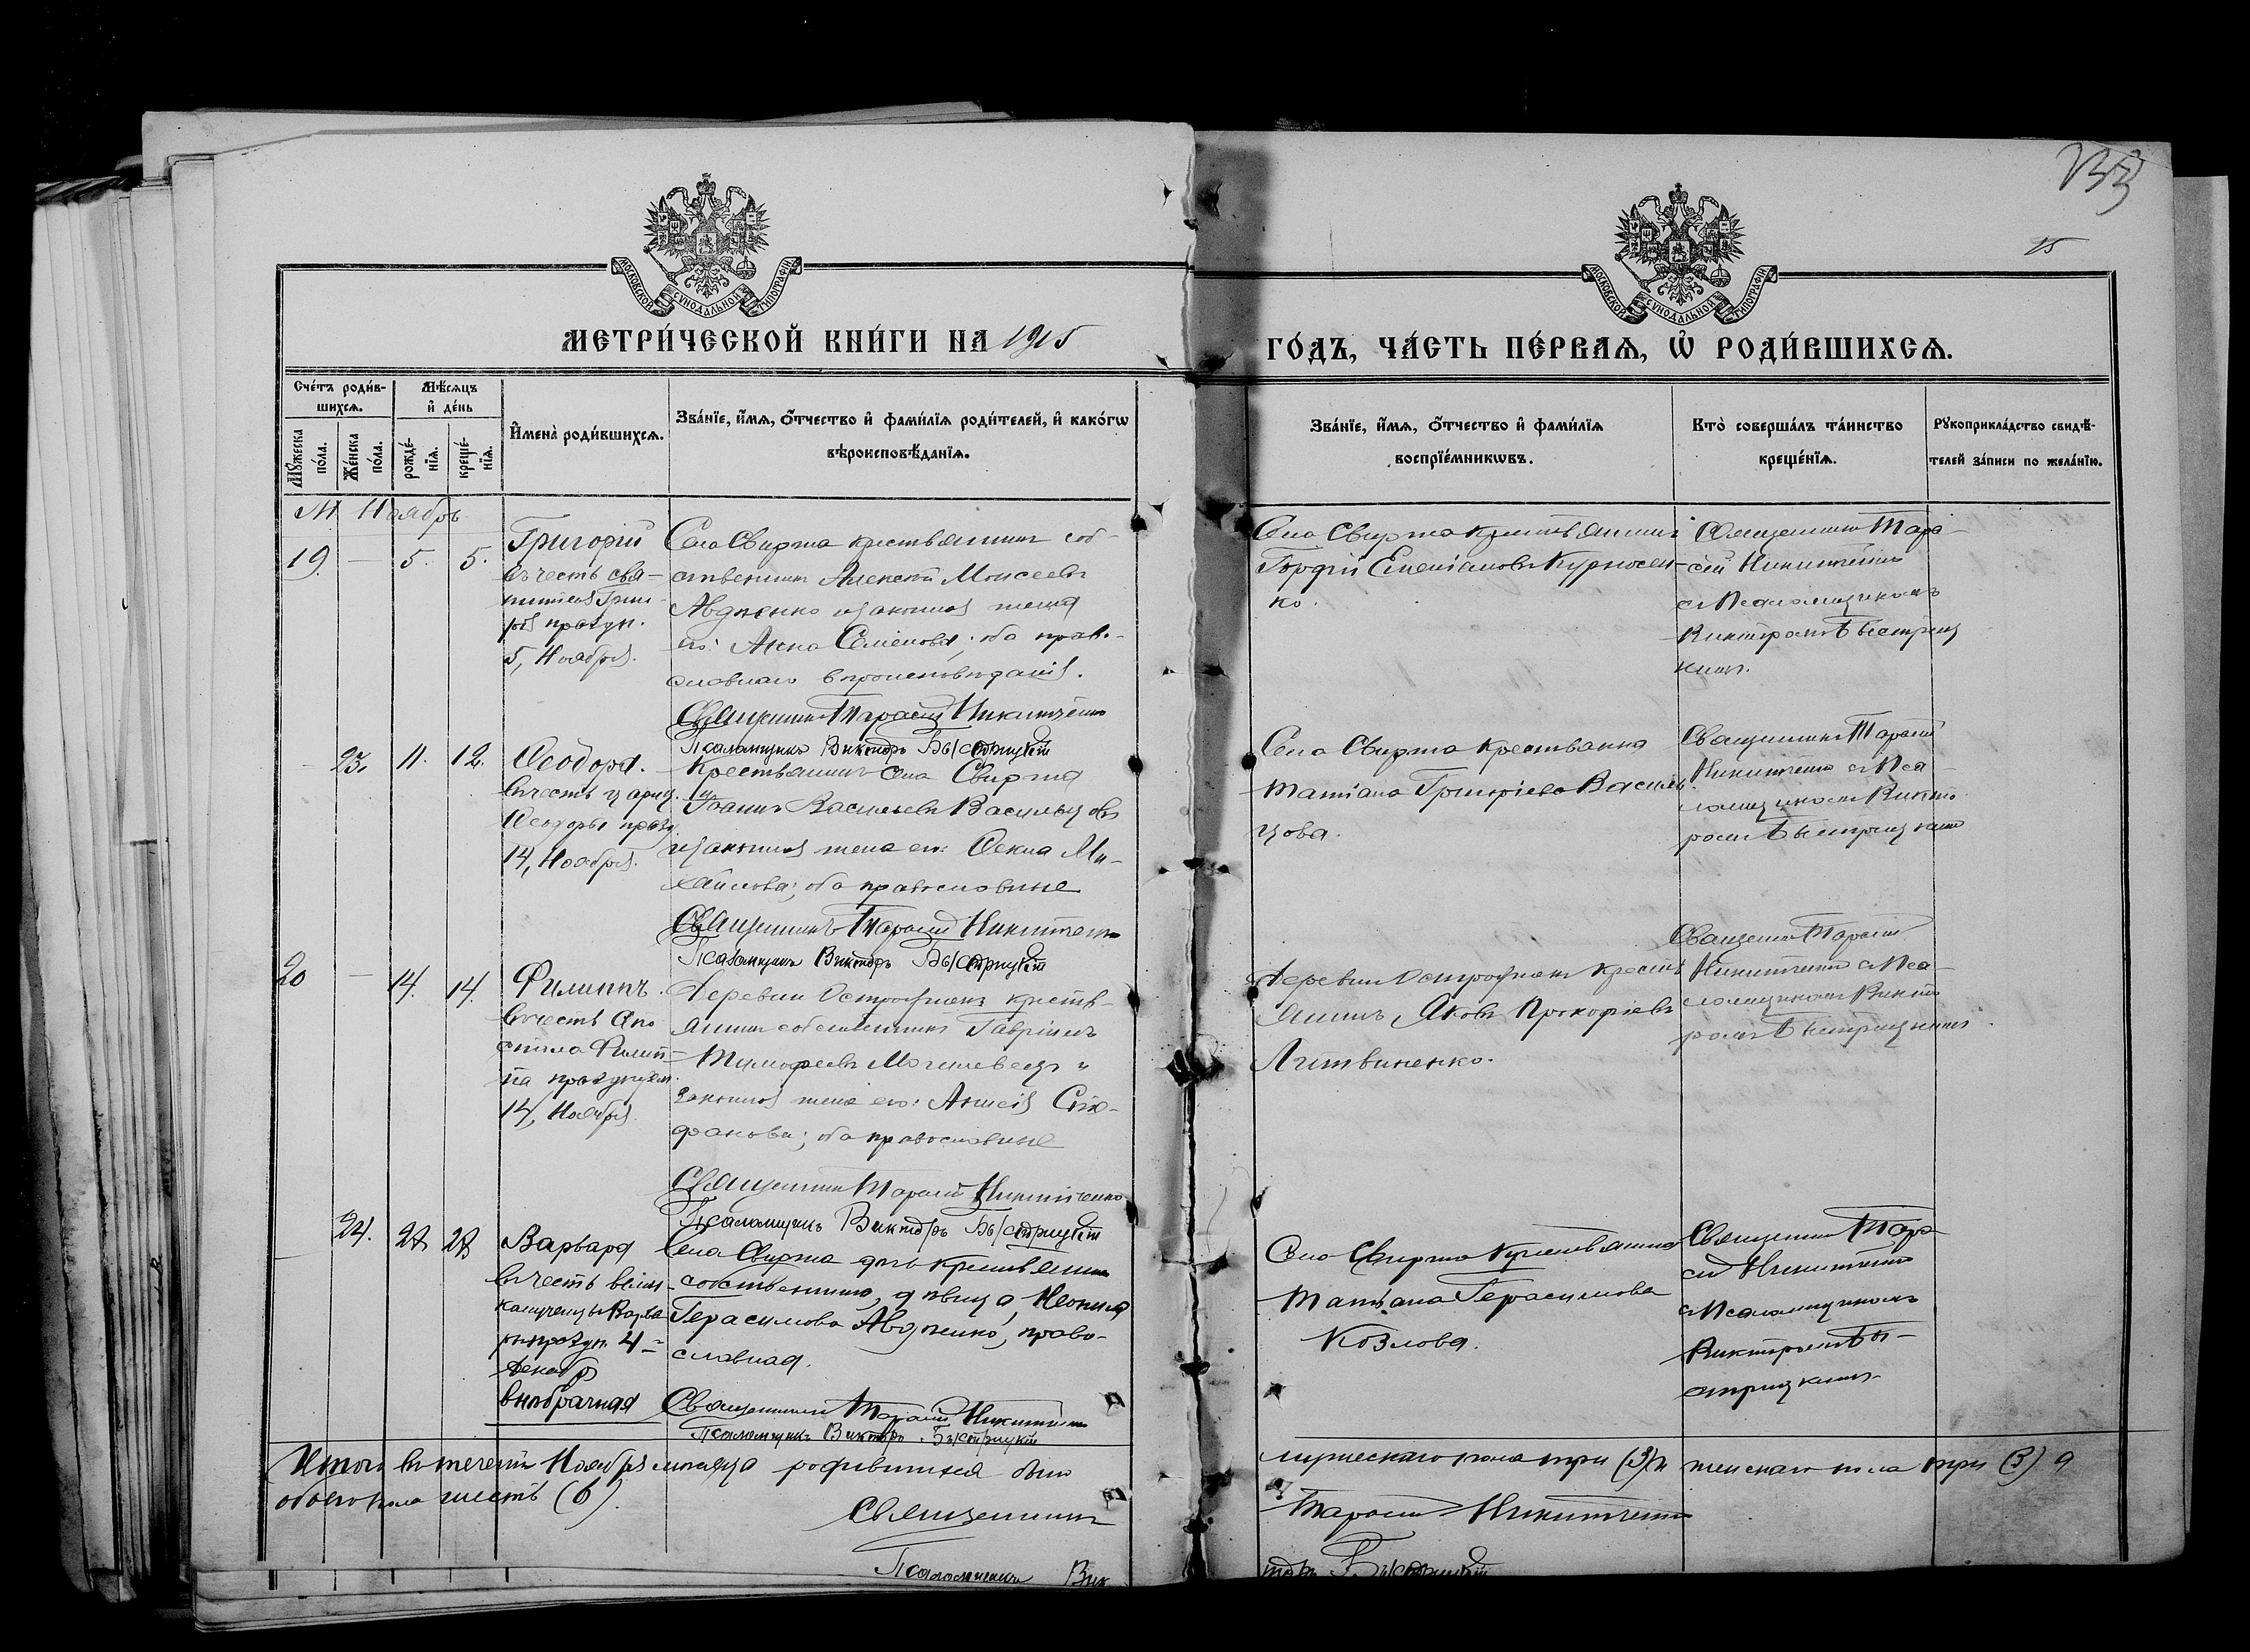 133
15
МОСКОВСКОЙ СѴНОДАЛЬНОЙ ТИПОГРАФІИ
МОСКОВСКОЙ СѴНОДАЛЬНОЙ ТИПОГРАФІИ
МЕТРИ́ЧЕСКОЙ КНИ́ГИ НА 1915
ГО́ДЪ, ЧА́СТЬ ПЕ́РВАЯ, Ѡ҆ РОДИ́ВШИХСЯ.
Сче́тъ роди́в-
шихся.
Мꙋ́жеска по́ла.
Же́нска по́ла.
Мѣ́сяцъ
и҆ де́нь
рожде́-
нїя.
креще́-
нїя.
И҆мена̀ роди́вшихся.
Зва́нїе, и҆́мя, ѻ҆́тчество и҆ фами́лїя роди́телей, и҆ како́гѡ
вѣроисповѣ́данїя.
Зва́нїе, и҆́мя, ѻ҆́тчество и҆ фами́лїя
воспрїе́мникѡвъ.
Кто̀ соверша́лъ та́инство
креще́нїя.
Рꙋкоприкла́дство свидѣ́-
телей за́писи по жела́нїю.
М. Ноябрь
19. — 5. 5.
Григорій
въ честь свя-
5, Ноября.
Села Свиржа крестьянинъ соб-
ственникъ Алексѣй Моисеевъ
Авдѣенко и законная жена
его: Анна Семенова; оба право-
славнаго вѣроисповѣданія.
Священникъ Тарасій Никитченко
Псаломщикъ Викторъ Быстрицкій
Села Свиржа крестьянинъ
Емеліановъ Курносен-
ко.
Священникъ Тара-
сій Никитченко
съ Псаломщикомъ
Викторомъ Быстриц
кимъ.
23. 11. 12.
Ѳеодора.
въ честь цариц.
Ѳеодоры празд.
14, Ноября.
Крестьянинъ села Свиржа
Іоаннъ Васильевъ Васильцовъ
и законная жена его: Ѳекла Ми-
хайлова; оба православные
Священникъ Тарасій Никитченко
Псаломщикъ Викторъ Быстрицкій
Села Свиржа крестьянка
Татіана Григоріева Василь-
цова.
Священникъ Тарасій
Никитченко съ Пса-
ломщикомъ Викто-
ромъ Быстрицкимъ
20 — 14. 14.
Филиппъ.
въ честь Апо
стола Филип-
па празднуем.
14, Ноября.
Деревни крестья-
янинъ собственникъ Гавріилъ
Тимофеевъ Могилевецъ и
законная жена его: Сте-
фанова; оба православные
Священникъ Тарасій Никитченко
Псаломщикъ Викторъ Быстрицкій
Деревни крестья
янинъ Яковъ Прокофіевъ
Литвиненко.
Священникъ Тарасій
Никитченко съ Пса-
ломщикомъ Викто
ромъ Быстрицкимъ
24. 27 27
Варвара
въ честь вели-
комученицы Варва
ры праздн. 4-
Декабр
внѣбрачная
Села Свиржа дочь крестьянина
собственника, дѣвица Неонила
Герасимова Авдѣенко, право-
славная.
Священникъ Тарасій Никитченко
Псаломщикъ Викторъ Быстрицкій
Села Свиржа крестьянка
Татіана Герасимова
Козлова.
Священникъ Тара
сій Никитченко
съ Псаломщикомъ
Викторомъ Бы-
стрицкимъ
Итого въ теченіи Ноября мѣсяца родившихся было
мужескаго пола три (3) и женскаго пола три (3) а
обоего пола шесть (6).
Священникъ
Тарасій Никитченко
Псаломщикъ Вик
торъ Быстрицкій